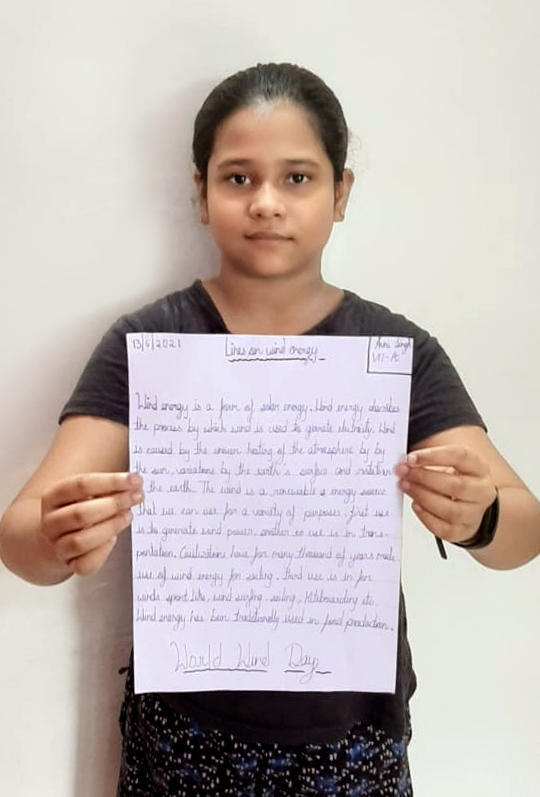 13/6/2021
Lines on wind energy
Singh
VII-A
Wind energy is a form of solar energy. Wind energy describes
the process by which wind is used to genrate eletricity. Wind
is caused by the uneven heating of the atmosphere by by
the sun, variations by the earth's surface and rotation
the earth. The wind is a renewable energy source
that we can use for a variety of purposes. First use
is to generate wind power, another use is in trans-
portation. Civilizations have for many thousand of years made
use of wind energy for sailing. Third use is in for
winds sport like, wind surfing, sailing, Kiteboarding etc.
Wind energy has been traditionally used in food production.
World Wind Day